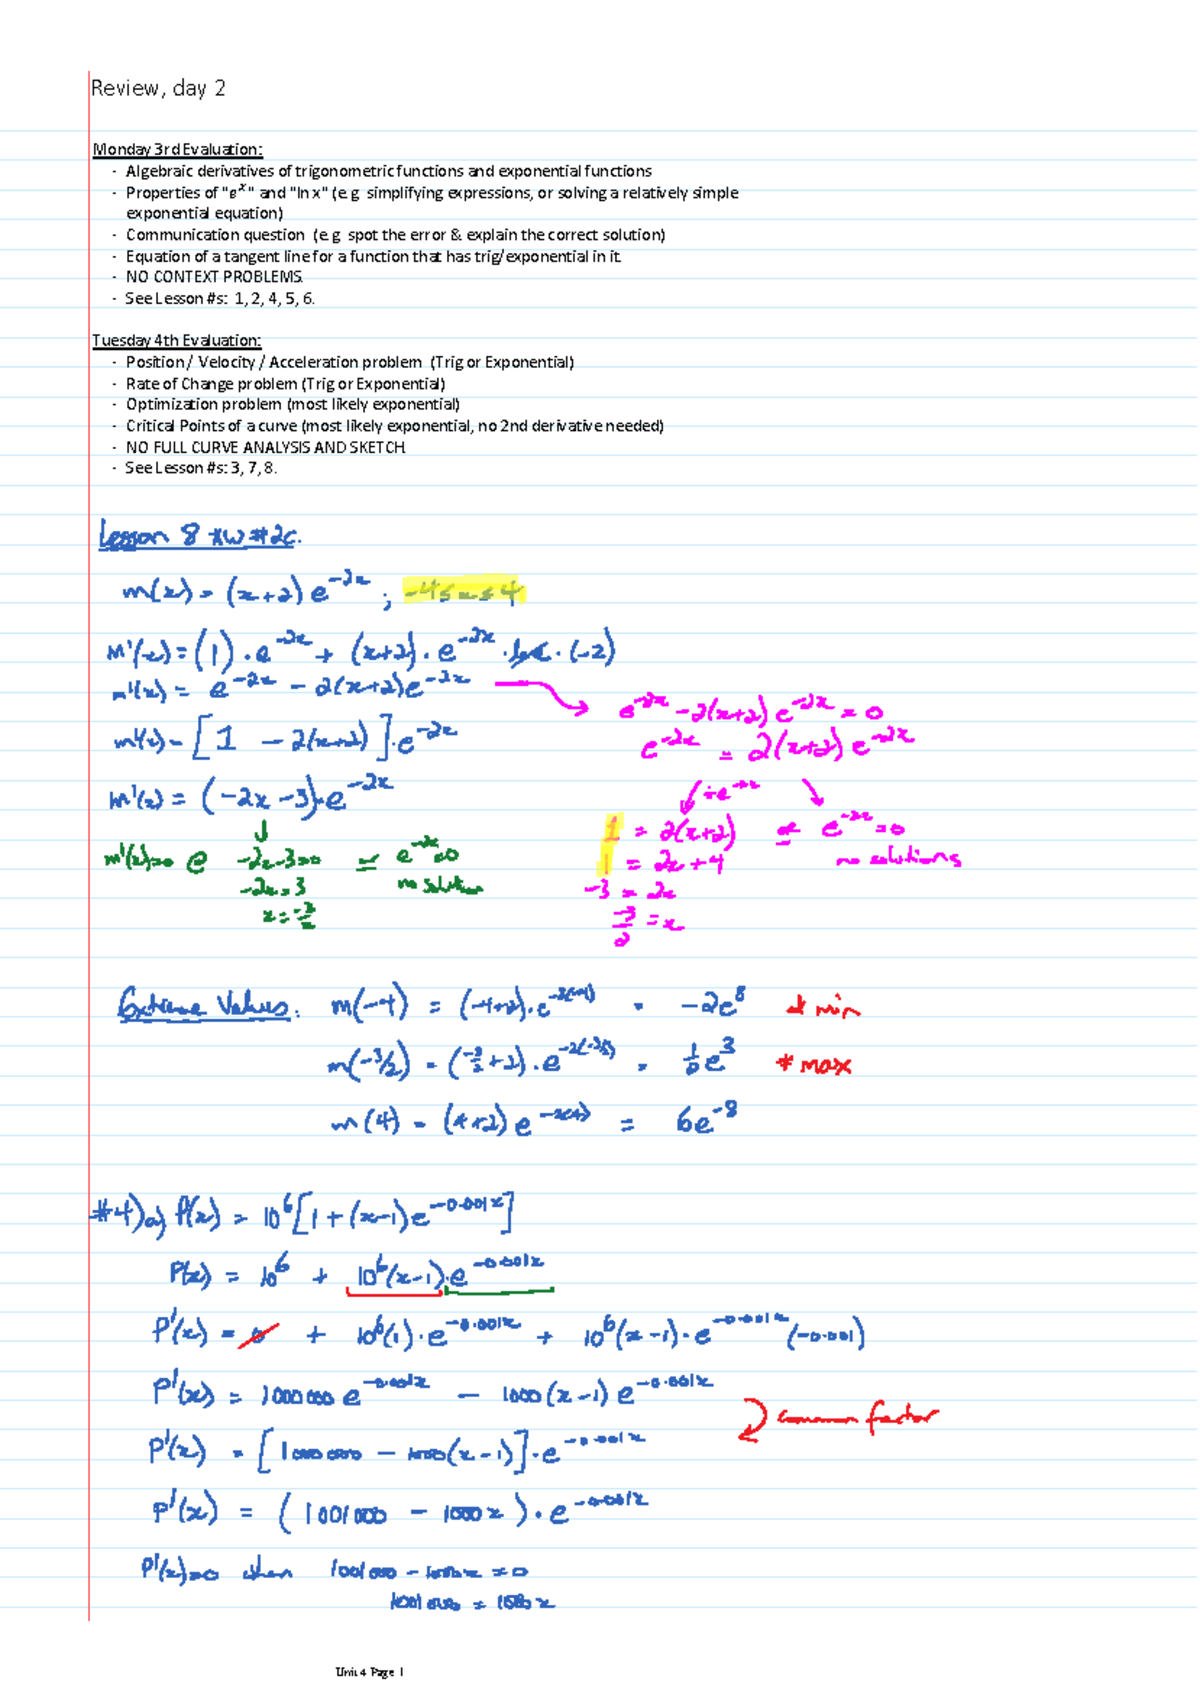 Review, day 2
Monday 3rd Evaluation:
- Algebraic derivatives of trigonometric functions and exponential functions
- Properties of "e^x" and "ln x" (e.g. simplifying expressions, or solving a relatively simple
exponential equation)
- Communication question (e.g. spot the error & explain the correct solution)
- Equation of a tangent line for a function that has trig/exponential in it.
- NO CONTEXT PROBLEMS.
- See Lesson #s: 1, 2, 4, 5, 6.
Tuesday 4th Evaluation:
- Position / Velocity / Acceleration problem (Trig or Exponential)
- Rate of Change problem (Trig or Exponential)
- Optimization problem (most likely exponential)
- Critical Points of a curve (most likely exponential, no 2nd derivative needed)
- NO FULL CURVE ANALYSIS AND SKETCH
- See Lesson #s: 3, 7, 8.
Lesson 8 HW #2c.
m(x) = (x+2) e^-2x ; -4≤x≤4
m'(x) = (1) · e^-2x + (x+2) · e^-2x · lne · (-2)
m'(x) = e^-2x - 2(x+2)e^-2x
e^-2x - 2(x+2) e^-2x = 0
m'(x) = [1 - 2(x+2)] · e^-2x
e^-2x = 2(x+2) e^-2x
m'(x) = (-2x - 3) · e^-2x
÷e^-2x
1 = 2(x+2) or e^-2x = 0
m'(x)=0 @ -2x-3=0 or e^-2x=0
1 = 2x+4 no solutions
-2x=3 no solution
-3 = 2x
x = -3/2
-3/2 = x
Extreme Values: m(-4) = (-4+2) · e^-2(-4) = -2e^8 * min
m(-3/2) = (-3/2 + 2) · e^-2(-3/2) = 1/2 e^3 * max
m(4) = (4+2) e^-2(4) = 6e^-8
#4) a) P(x) = 10^6 [1 + (x-1) e^-0.001x]
P(x) = 10^6 + 10^6 (x-1) · e^-0.001x
P'(x) = 0 + 10^6 (1) · e^-0.001x + 10^6 (x-1) · e^-0.001x (-0.001)
P'(x) = 1000000 e^-0.001x - 1000 (x-1) e^-0.001x
common factor
P'(x) = [1000000 - 1000(x-1)] · e^-0.001x
P'(x) = (1001000 - 1000x) · e^-0.001x
P'(x)=0 when 1001000 - 1000x = 0
1001000 = 1000x
Unit 4 Page 1